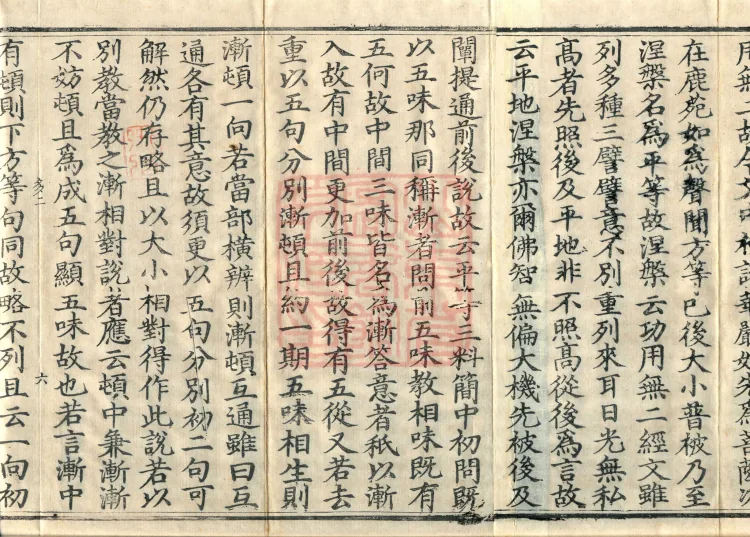 用無二故令文
在鹿苑如爲聲聞方等已後大小普被乃至
涅槃名爲平等故涅槃云功用無二經文雖
列多種三譬譬意不別重列來耳日光無私
高者先照後及平地非不照高從後爲言故
云平地涅槃亦爾佛智無偏大機先被後及
闡提通前後說故云平等三料簡中初問既
以五味那同稱漸者問前五味教相味既有
五何故中間三味皆名爲漸答意者秖以漸
入故有中間更加前後故得有五從又若去
重以五句分別漸頓且約一期五味相生則
漸頓一向若當部橫辨則漸頓互通雖曰互
通各有其意故須更以五句分別初二句可
解然仍存略且以大小相對得作此說若以
別教當教之漸相對說者應云頓中兼漸漸
不妨頓且爲成五句顯五味故也若言漸中
六
有頓則下方等句同故略不列且云一向初